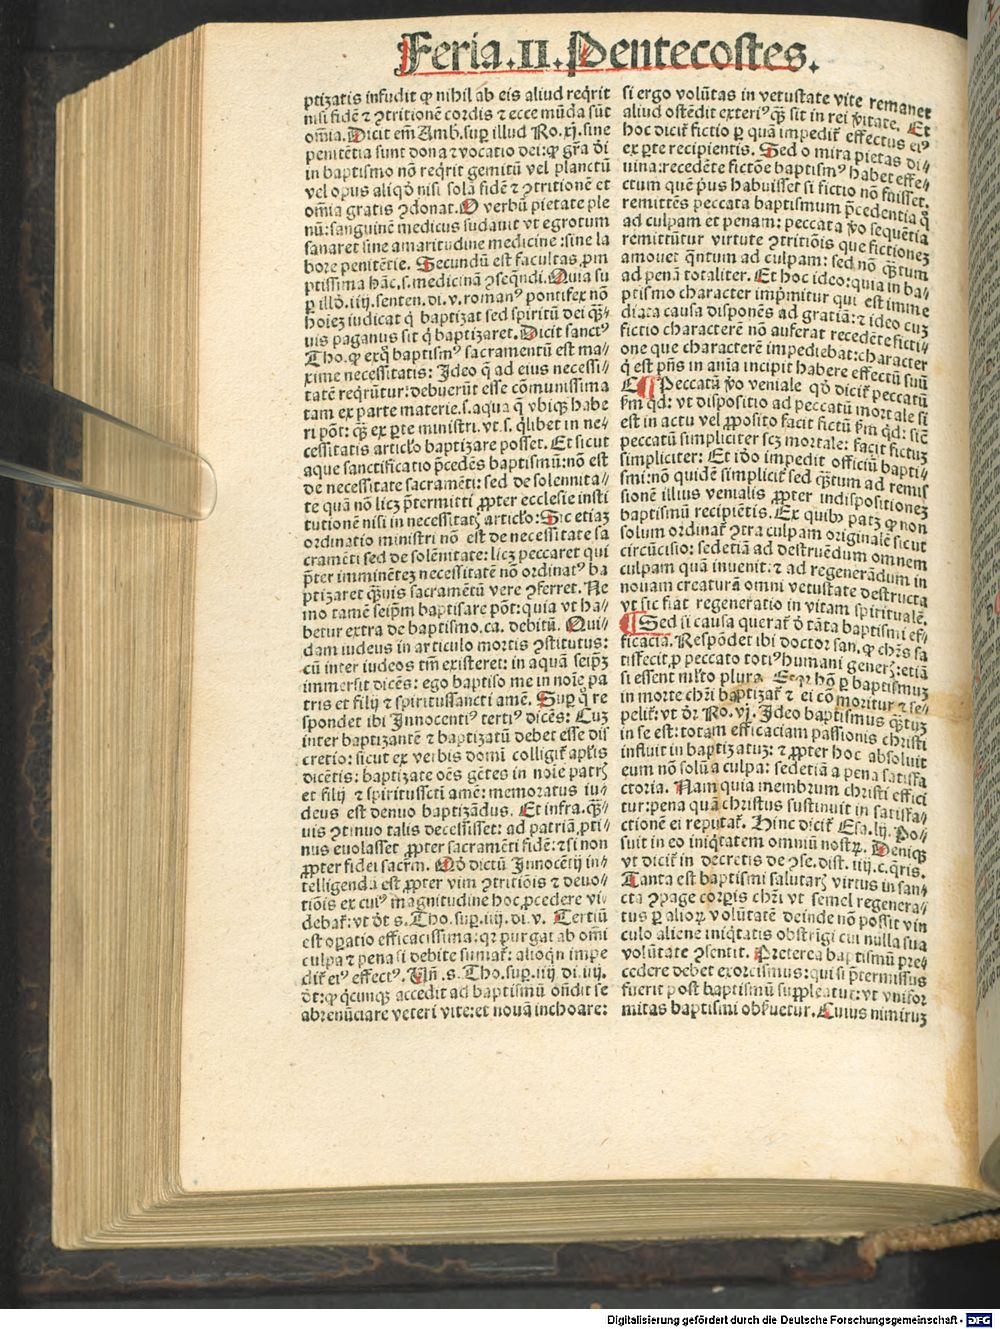 Feria.II.Pentecostes.
ptizatis infudit qꝫ nihil ab eis aliud reqͥrit
nisi fidē ⁊ ꝯtritionē cordis ⁊ ecce mūda sūt
om̄ia. Dicit em̄ Amb. suꝑ illud Ro. xj. sine
penitētia sunt dona ⁊ vocatio dei: qꝫ gr̄a d̄i
in baptismo nō reqͥrit gemitū vel planctū
vel opus aliqḋ nisi solā fidē ⁊ ꝯtritionē et
om̄ia gratis ꝯdonat. O verbū pietate ple
nū: sanguinē medicus sudauit vt egrotum
sanaret sine amaritudine medicine: sine la
bore penitētie. Secundū est facultas ꝓm
ptissima hāc .s. medicinā ꝯseqn̄di. Quia su
ꝑ illo .iiij. senten. di. v. romanꝰ pontifex nō
hoīez iudicat q̇ baptizat sed spiritū dei qͣꝫ⸗
uis paganus sit q̇ baptizaret. Dicit sanctꝰ
Tho. qꝫ exq̊ baptismꝰ sacramentū est ma⸗
xime necessitatis: Ideo q̄ ad eius necessi⸗
tatē reqͥrūtur: debuerūt esse cōmunissima
tam ex parte materie .s. aqua q̄ vbiqꝫ habe
ri pōt: qͣꝫ ex ꝑte ministri. vt .s. qͥlibet in ne⸗
cessitatis articl'o baptizare posset. Et sicut
aque sanctificatio p̄cedēs baptismū: nō est
de necessitate sacramēti: sed de solennita⸗
te quā nō licꝫ p̄termitti ꝓpter ecclesie insti
tutionē nisi in necessitatꝭ articl'o: Sic etiaꝫ
ordinatio ministri nō est de necessitate sa
cramēti sed de solēnitate: licꝫ peccaret qui
p̄ter imminētez necessitatē nō ordinatꝰ ba
ptizaret qͣꝫuis sacramētū vere ꝯferret. Ne
mo tamē seip̄m baptisare pōt: quia vt ha⸗
betur extra de baptismo. ca. debitū. Qui⸗
dam iudeus in articulo mortis ꝯstitutus:
cū inter iudeos tm̄ existeret: in aquā seip̄ꝫ
immersit dicēs: ego baptiso me in noīe pa
tris et filij ⁊ spiritussancti amē. Suꝑ q̊ re
spondet ibi Innocentiꝰ tertiꝰ dicēs: Cuꝫ
inter baptizantē ⁊ baptizatū debet esse dis
cretio: sicut ex verbis domī colligit̄ ap̄lis
dicētis: baptizate oēs gētes in noīe patrꝭ
et filij ⁊ spiritusscti amē: memoratus iu⸗
deus est denuo baptizādus. Et infra. qͣꝫ⸗
uis ꝯtinuo talis decessisset: ad patriā ꝓti⸗
nus euolasset ꝓpter sacramēti fidē: ⁊ si non
ꝓpter fidei sacrm̄. Qḋ dictū Innocētij in⸗
telligendā est ꝓpter vim ꝯtritiōis ⁊ deuo⸗
tiōis ex cuiꝰ magnitudine hoc ꝓcedere vi⸗
debat̄: vt d̄t s. Tho. suꝑ .iiij. di. v. Tertiū
est oꝑatio efficacissima: qꝛ purgat ab om̄i
culpa ⁊ pena si debite sumat̄: alioqͥn impe
dit̄ eiꝰ effectꝰ. Un̄ .s. Tho. suꝑ .iiij. di. iiij.
d̄t: qꝫ qͥcunqꝫ accedit ad baptismū on̄dit se
abrenūciare veteri vite: et nouā inchoare:
si ergo volūtas in vetustate vite remanet
aliud ostēdit exteriꝰ qͣꝫ sit in rei v̓itate. Et
hoc dicit̄ fictio ꝑ quā impedit̄ effectus eiꝰ
ex ꝑte recipientis. Sed o mira pietas di⸗
uina: recedēte fictōe baptismꝰ habet effe⸗
ctum quē p̓us habuisset si fictio nō fuisset.
remittēs peccata baptismum p̄cedentia q̊
ad culpam et penam: peccata v̊o sequētia
remittūtur virtute ꝯtritiōis que fictionez
amouet qͣntum ad culpam: sed nō qͣꝫtum
ad penā totaliter. Et hoc ideo: quia in ba⸗
ptismo character imp̓mitur qui est imme
diata causa disponēs ad gratiā: ⁊ ideo cuꝫ
fictio characterē nō auferat recedēte ficti⸗
one que characterē impediebat: character
q̇ est p̄ns in aīa incipit habere effectū suū
Peccatū v̊o veniale qḋ dicit̄ peccatū
km̄ qd: vt dispositio ad peccatū mortale si
est in actu vel ꝓposito facit fictū km̄ qd: sic
peccatū simpliciter scꝫ mortale: facit fictuꝫ
simpliciter: Et iḋo impedit officiū bapti⸗
smi: nō quidē simplicit̄ sed qͣꝫtum ad remis
sionē illius venialis ꝓpter indispositionez
baptismū recipiētis. Ex quibꝰ patꝫ qꝫ non
solum ordinat̄ ꝯtra culpam originalē sicut
circūcisio: sedetiā ad destruēdum omnem
culpam quā inuenit: ⁊ ad regenerādum in
nouam creaturā omni vetustate destructa
vt sic fiat regeneratio in vitam spiritualē.
Sed si causa querat̄ d̄ tāta baptismi ef⸗
ficacia. Respōdet ibi doctor san. qꝫ chr̄s sa
tisfecit ꝓ peccato totiꝰ humani generꝭ: etiā
si essent ml'to plura. hō ꝑ baptismuꝫ
in morte chr̄i baptizat̄ ⁊ ei cōmoritur ⁊ se⸗
pelit̄: vt d̄r Ro. vj. Ideo baptismus qͣꝫtuꝫ
in se est: totam efficaciam passionis christi
influit in baptizatuꝫ: ⁊ ꝓpter hoc absoluit
eum nō solū a culpa: sedetiā a pena satisfa
ctoria. Nam quia membrum christi effici
tur: pena quā christus sustinuit in satisfa⸗
ctionē ei reputat̄. Hinc dicit̄ Esa. lij. Po⸗
suit in eo iniqͥtatem omniū nostrꝭ. Deniqꝫ
vt dicit̄ in decretis de ꝯse. dist. iiij. c. qͥris.
Tanta est baptismi salutarꝭ virtus in san⸗
cta ꝯpage corꝑis chr̄i vt semel regenera⸗
tus ꝑ alioꝝ volūtatē deinde nō possit vin
culo aliene iniqͥtatis obstrīgi cui nulla sua
volūtate ꝯsentit. Preterea baptismū pre⸗
cedere debet exorcismus: qui si p̄termissus
fuerit post baptismū suppleatur: vt vnifor
mitas baptismi obẜuetur. Cuius nimiruꝫ
Digitalisierung gefördert durch die Deutsche Forschungsgemeinschaft - DFG